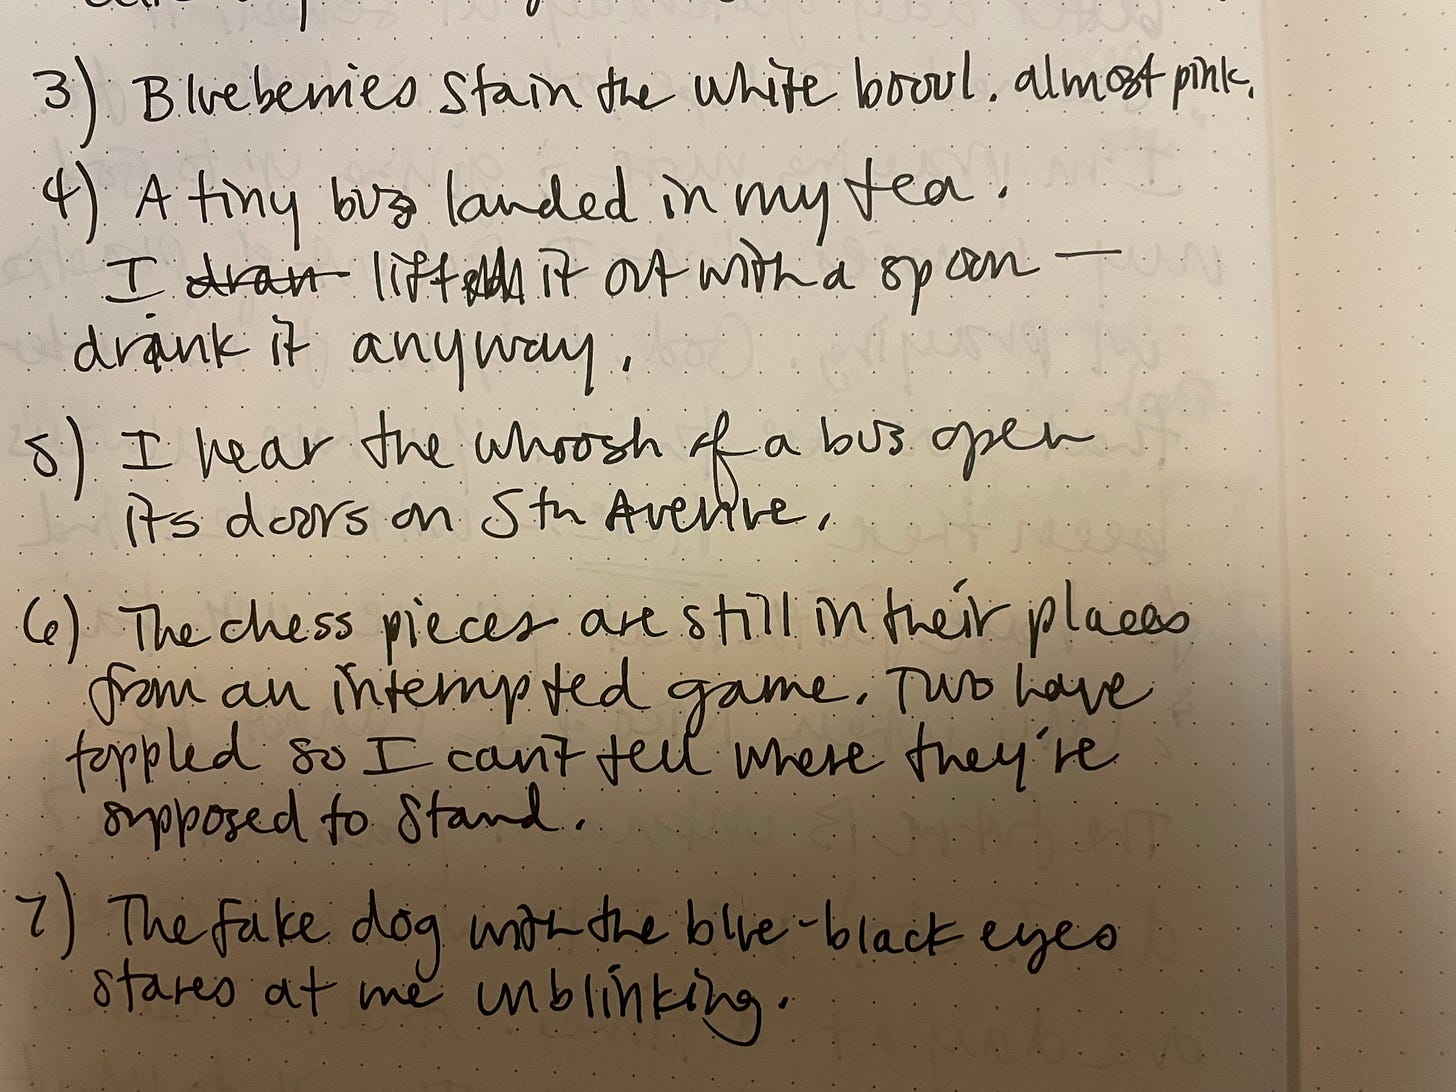 3) Blueberries stain the white bowl. almost pink.
4) A tiny bug landed in my tea.
I dran lifted it out with a spoon —
drank it anyway.
5) I hear the whoosh of a bus open
its doors on 5th Avenue.
6) The chess pieces are still in their places
from an interrupted game. Two have
toppled so I can't tell where they're
supposed to stand.
7) The fake dog with the blue-black eyes
stares at me unblinking.